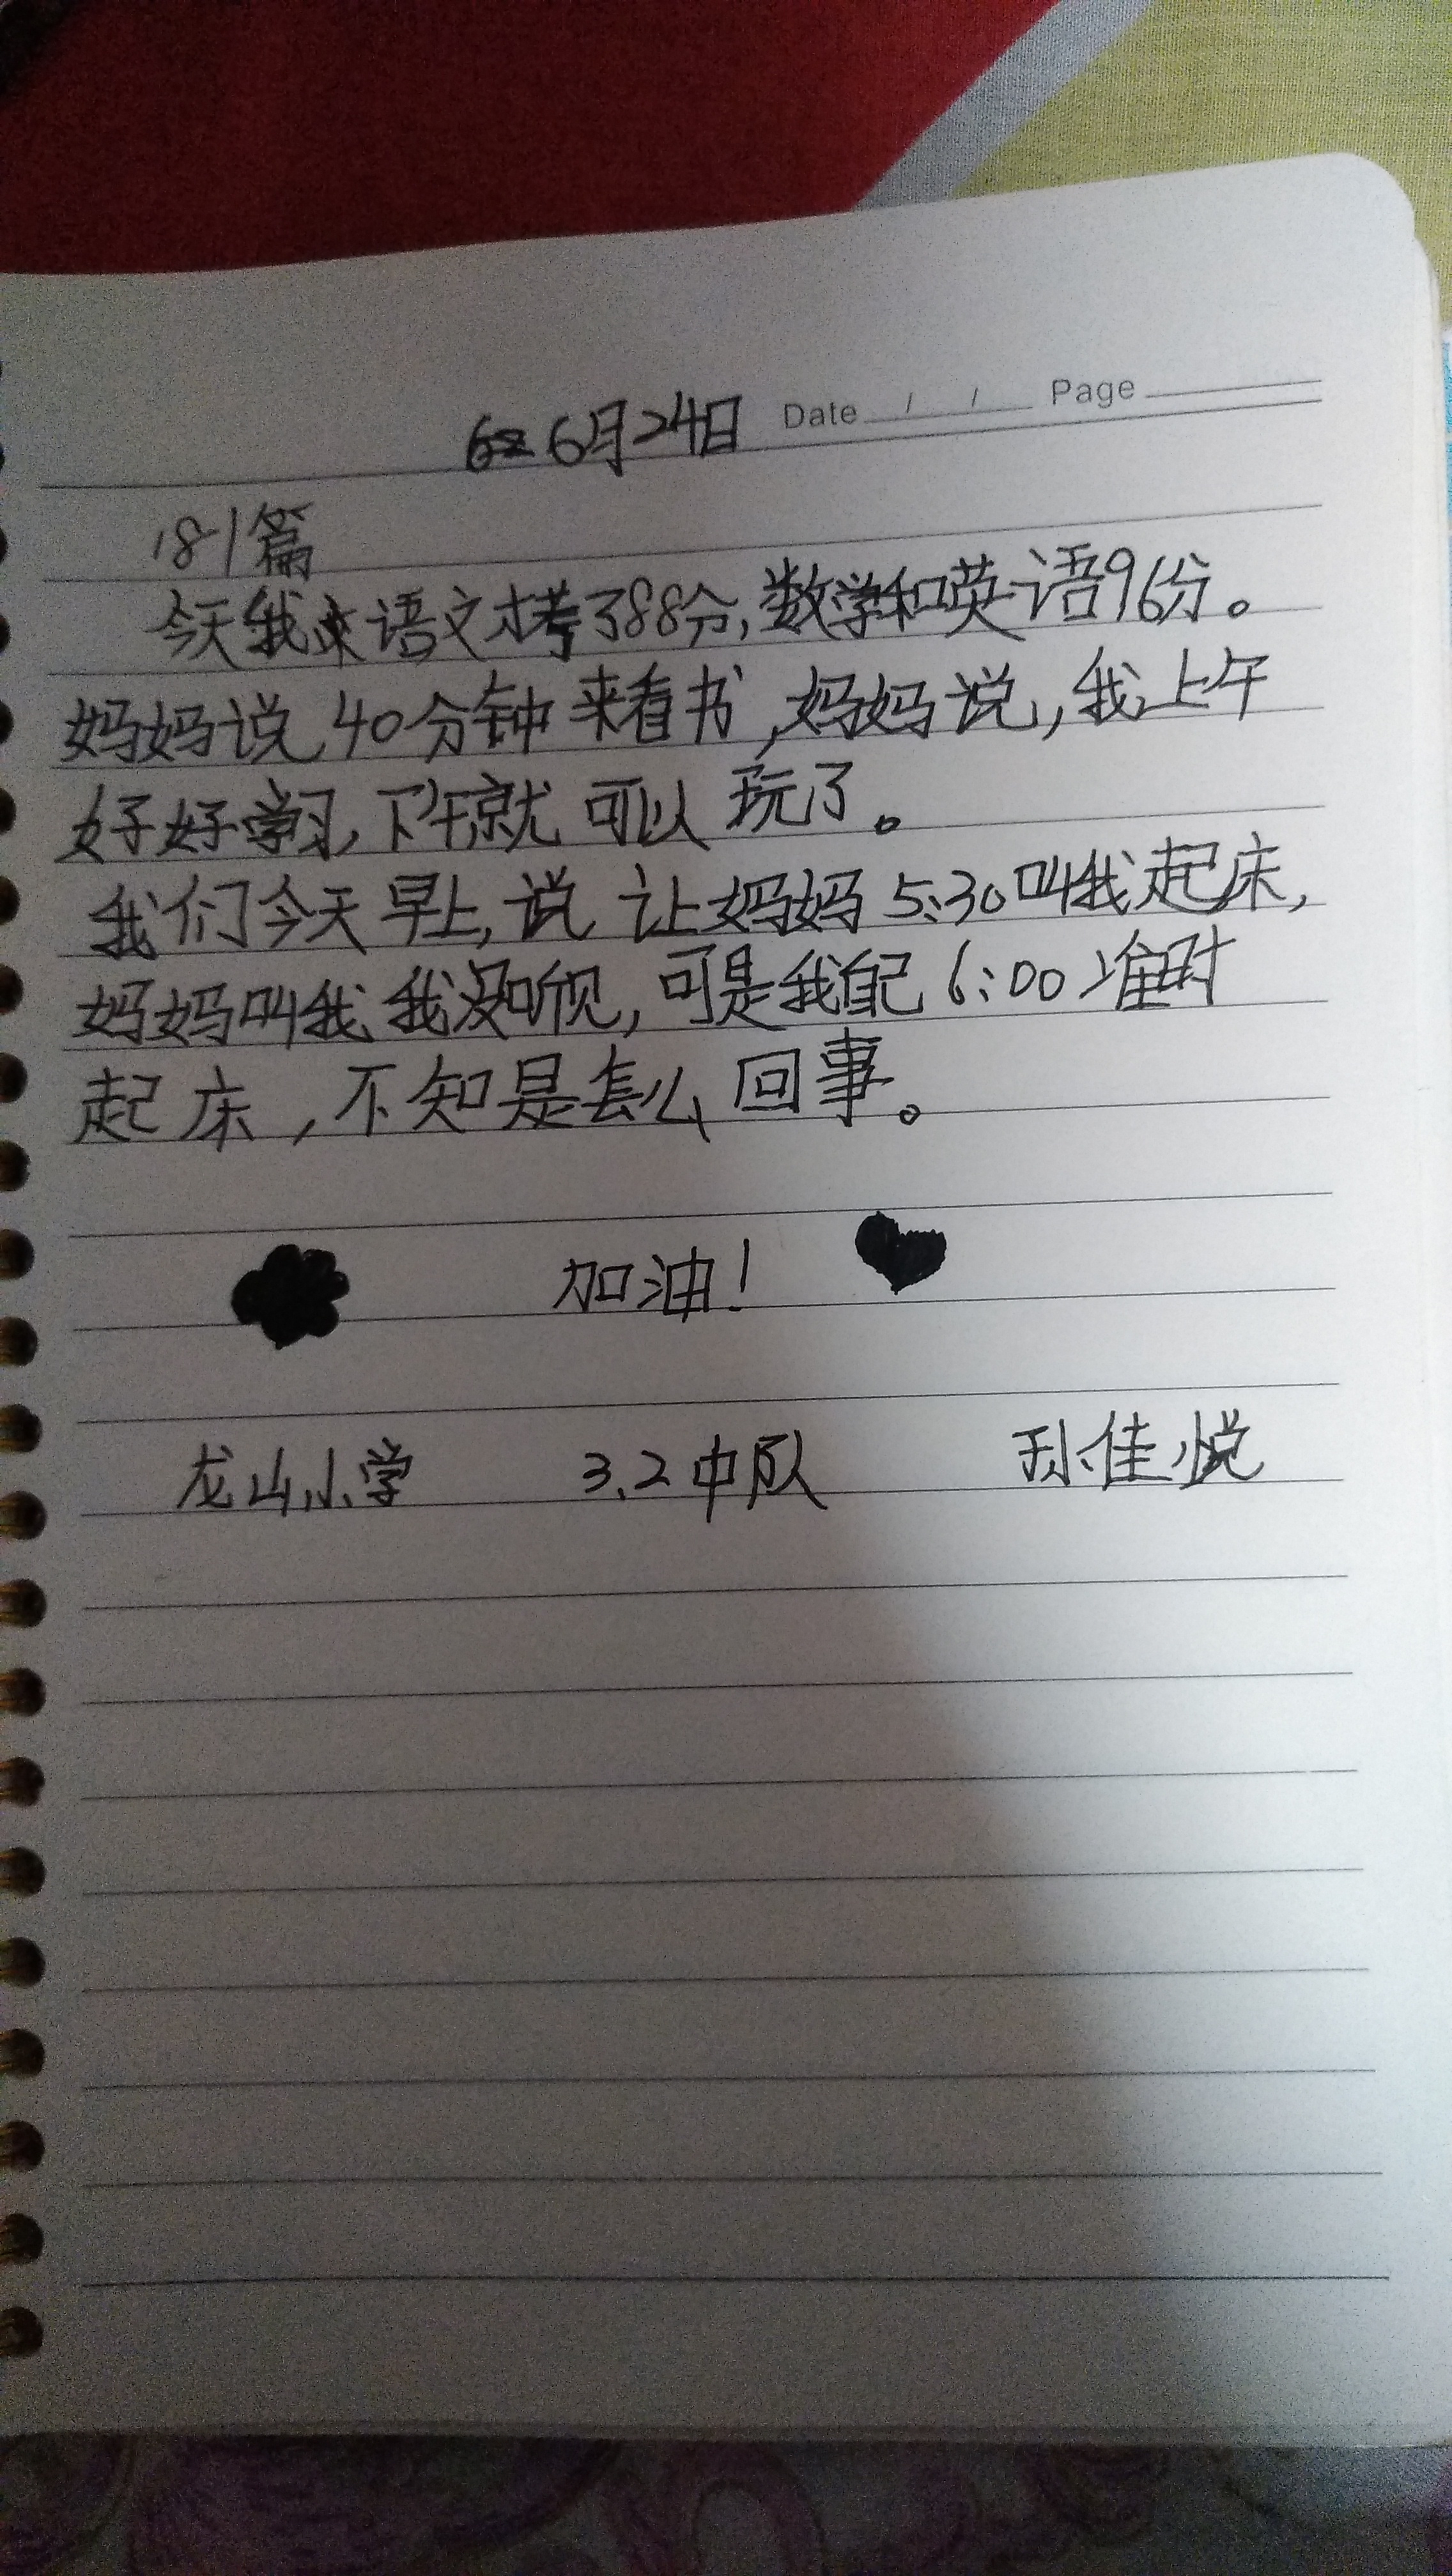 6月24日 Date / / Page
181篇
今天我来语文才考了88分,数学和英语96分。
妈妈说40分钟来看书,妈妈说,我上午
好好学习,下午就可以玩了。
我们今天早上,说让妈妈5:30叫我起床,
妈妈叫我、我没听见,可是我自己6:00准时
起床,不知是怎么回事。
加油!
龙山小学 3.2中队 孙佳悦